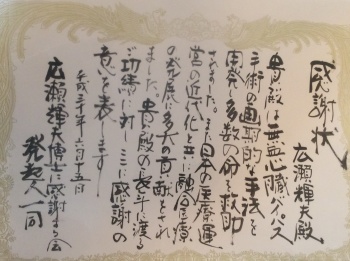 感謝状
広瀬輝夫殿
貴殿は無血心臓バイパス
手術の画期的な手法を
開発し多数の命を救助
されました。また日本の医療運
営の近代化と共に融合医療
の発展に多大の貢献をされ
ました。貴殿の長年に渡る
ご功績に対しここに感謝の
意を表します
平成二十年六月十五日
広瀬輝夫博士に感謝する会
発起人一同